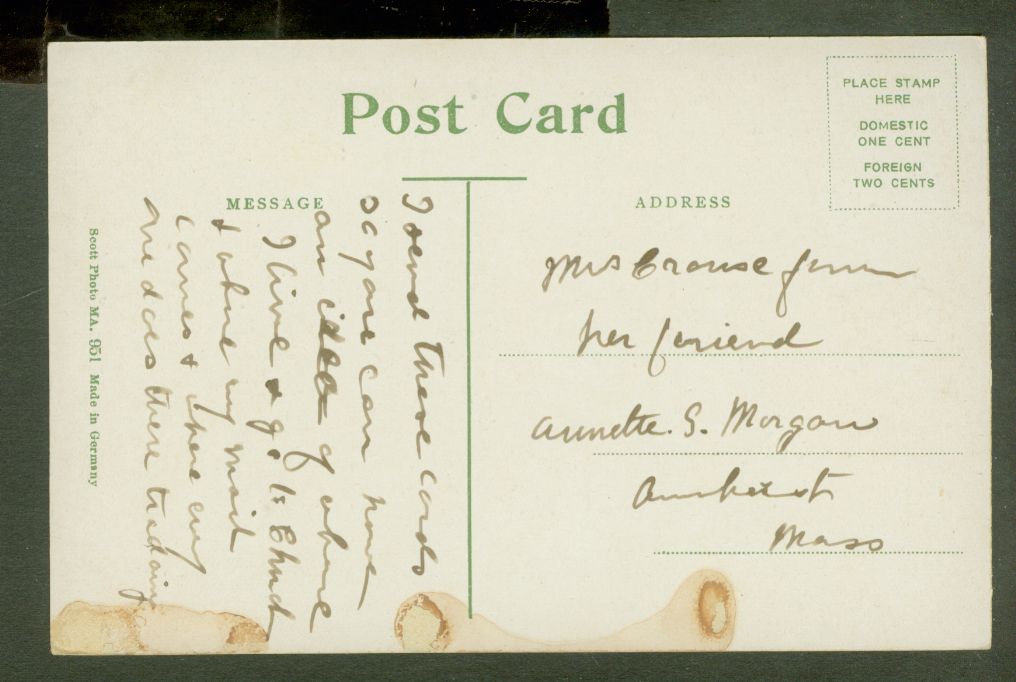 Post Card
PLACE STAMP
HERE
DOMESTIC
ONE CENT
FOREIGN
TWO CENTS
MESSAGE
ADDRESS
I send these cards
so you can have
an idea of where
I live & go to Church
& where my mail
comes & where my
one does there trading
Mrs Crouse from
her friend
Annette. S. Morgan
Amherst
Mass
Scott Photo MA. 951 Made in Germany